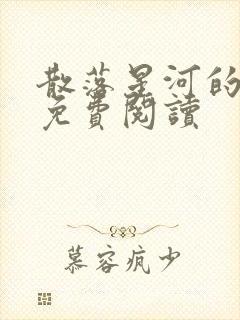 散落星河的
免費閱讀
慕容疯少